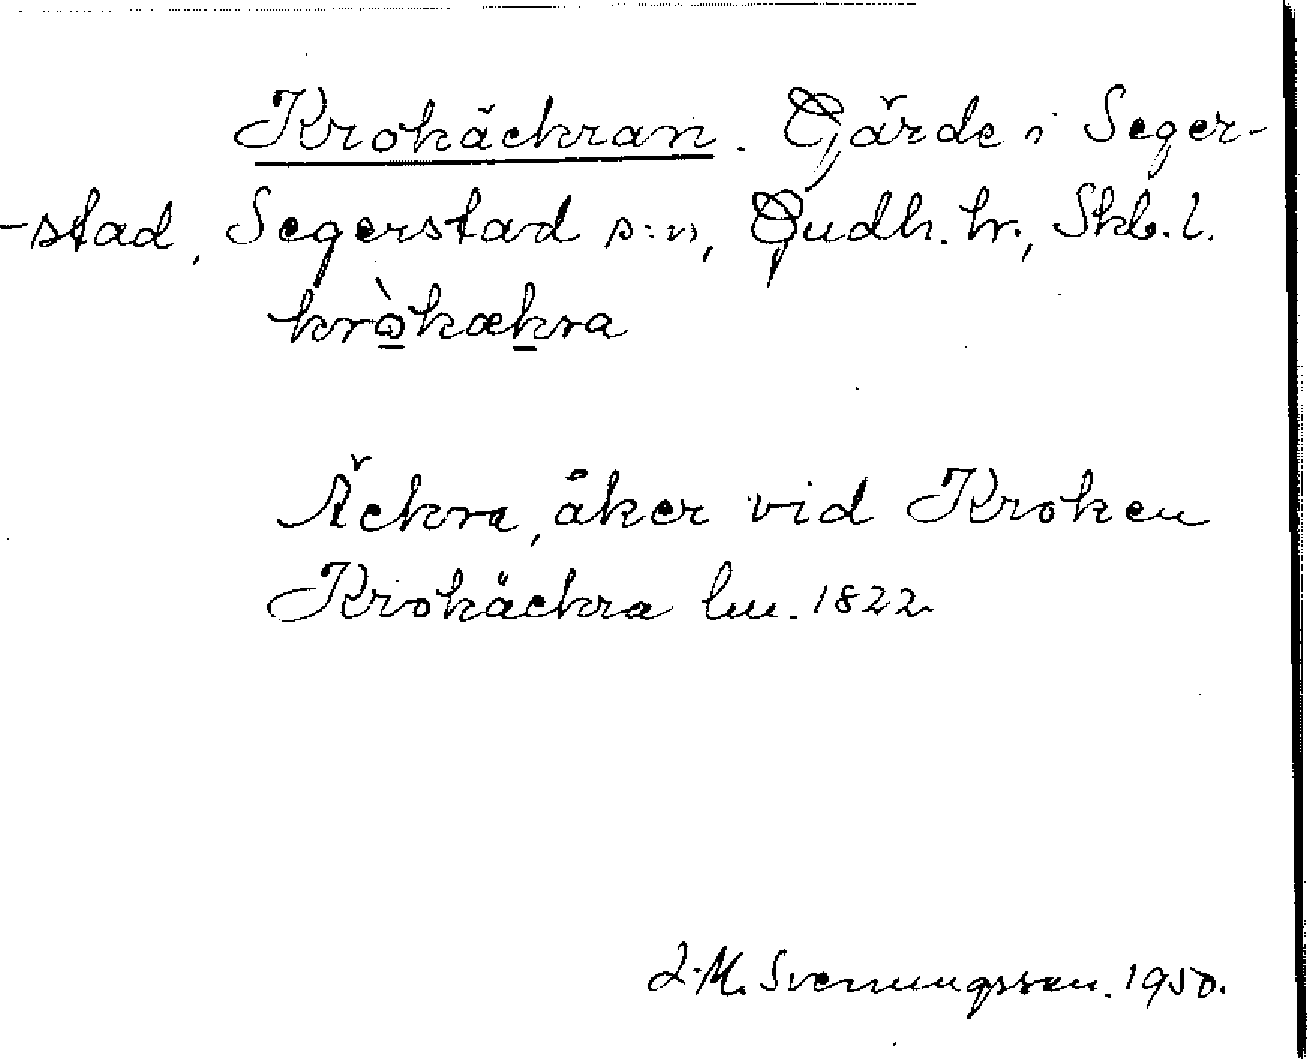 Krokäckran. Gärde i Seger-
-stad, Segerstad s:n, Gudh. hr., Skb. l.
kròkækra
Äckra, åker vid Kroken
Krokäckra lm. 1822
L-M. Svenungsson. 1950.